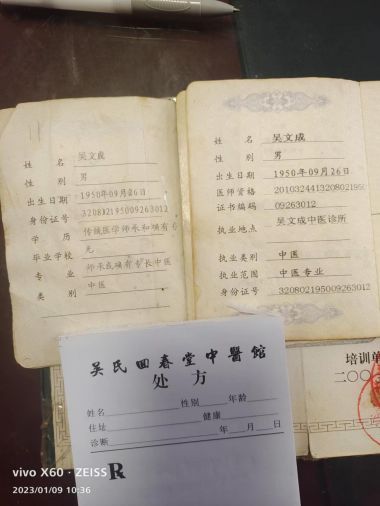 姓 名 吴文成
性 别 男
出生日期 1950年09月26日
身份证号 320802195009263012
学 历 传统医学师承和确有专
毕业学校 无
专 业 师承或确有专长中医
类 别 中医
姓 名 吴文成
性 别 男
出生日期 1950年09月26日
医师资格 2010324413208021950
证书编码 09263012
执业地点 吴文成中医诊所
执业类别 中医
执业范围 中医专业
身份证号 320802195009263012
培训单
二〇〇
吴氏回春堂中醫館
处 方
姓名 性别 年龄
住址 健康
诊断 年 月 日
R
vivo X60 · ZEISS
2023/01/09 10:36